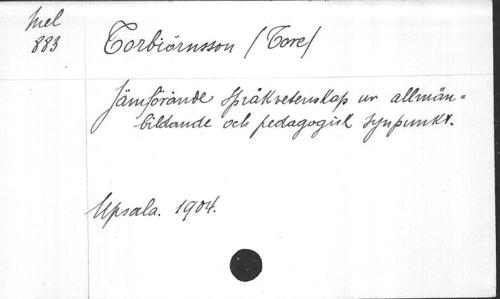 Mel
883
Torbiörnsson (Tore)
Jämförande Språkvetenskap ur allmän=
bildande och pedagogisk synpunkt.
Upsala. 1904.